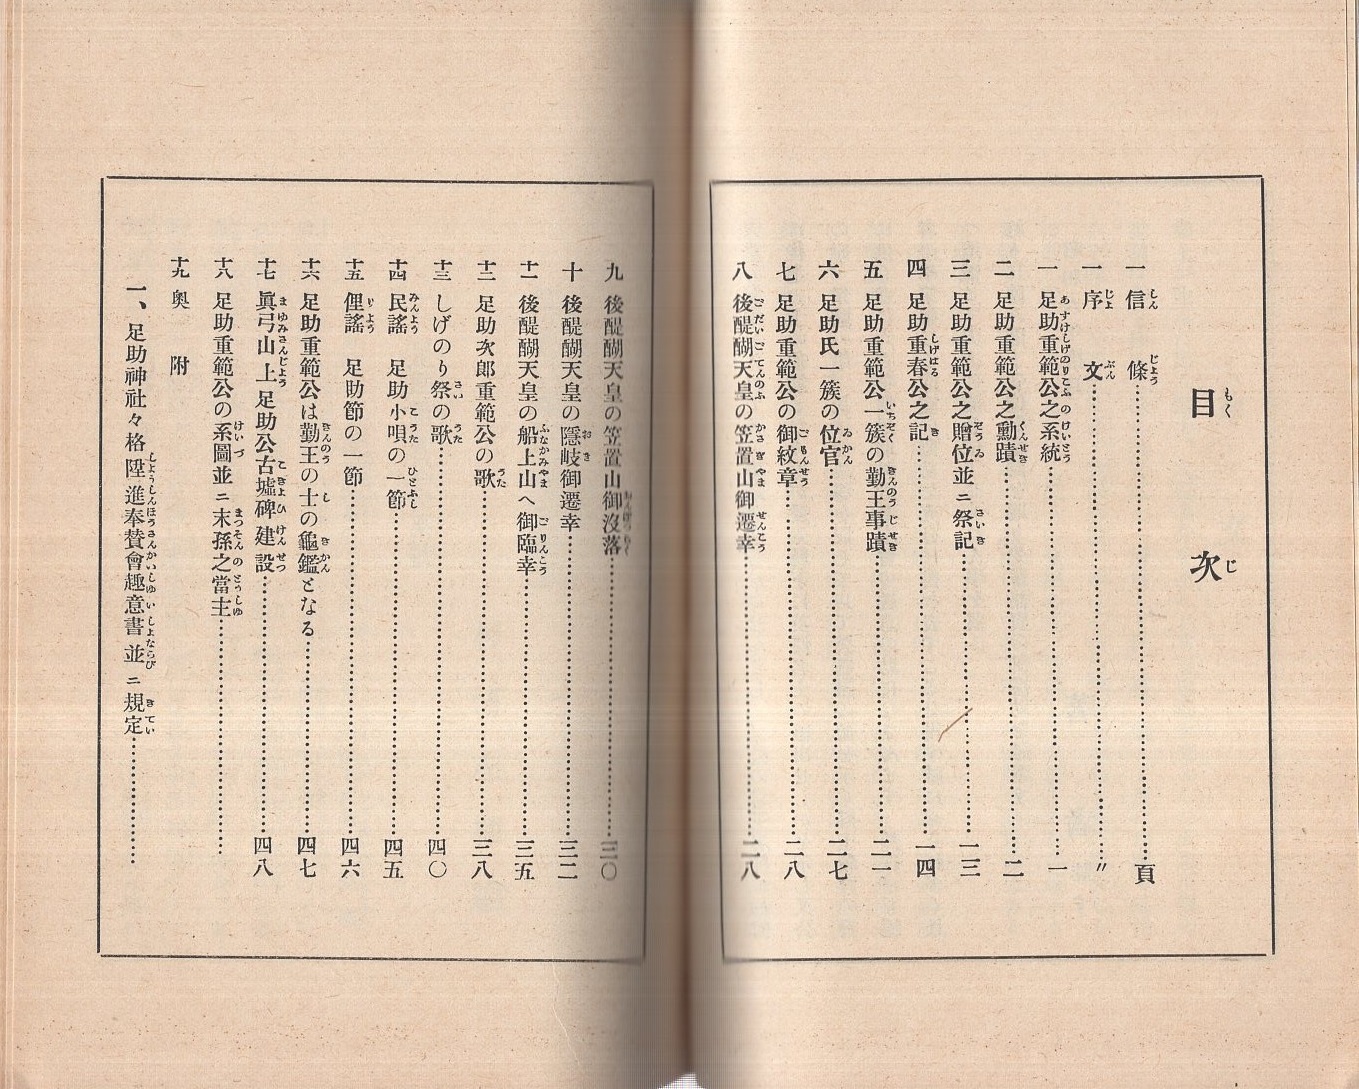 目次
一 信條…………頁
一 序文…………〃
一 足助重範公之系統…………一
二 足助重範公之勳蹟…………二
三 足助重範公之贈位並ニ祭記…………一三
四 足助重春公之記…………一四
五 足助重範公一簇の勤王事蹟…………二一
六 足助氏一簇の位官…………二七
七 足助重範公の御紋章…………二八
八 後醍醐天皇の笠置山御遷幸…………二八
九 後醍醐天皇の笠置山御沒落…………三〇
十 後醍醐天皇の隱岐御遷幸…………三二
十一 後醍醐天皇の船上山へ御臨幸…………三五
十二 足助次郎重範公の歌…………三八
十三 しげのり祭の歌…………四〇
十四 民謠 足助小唄の一節…………四五
十五 俚謠 足助節の一節…………四六
十六 足助重範公は勤王の士の龜鑑となる…………四七
十七 眞弓山上足助公古墟碑建設…………四八
十八 足助重範公の系圖並ニ末孫之當主…………
十九 奥附
一、足助神社々格陞進奉賛會趣意書並ニ規定…………